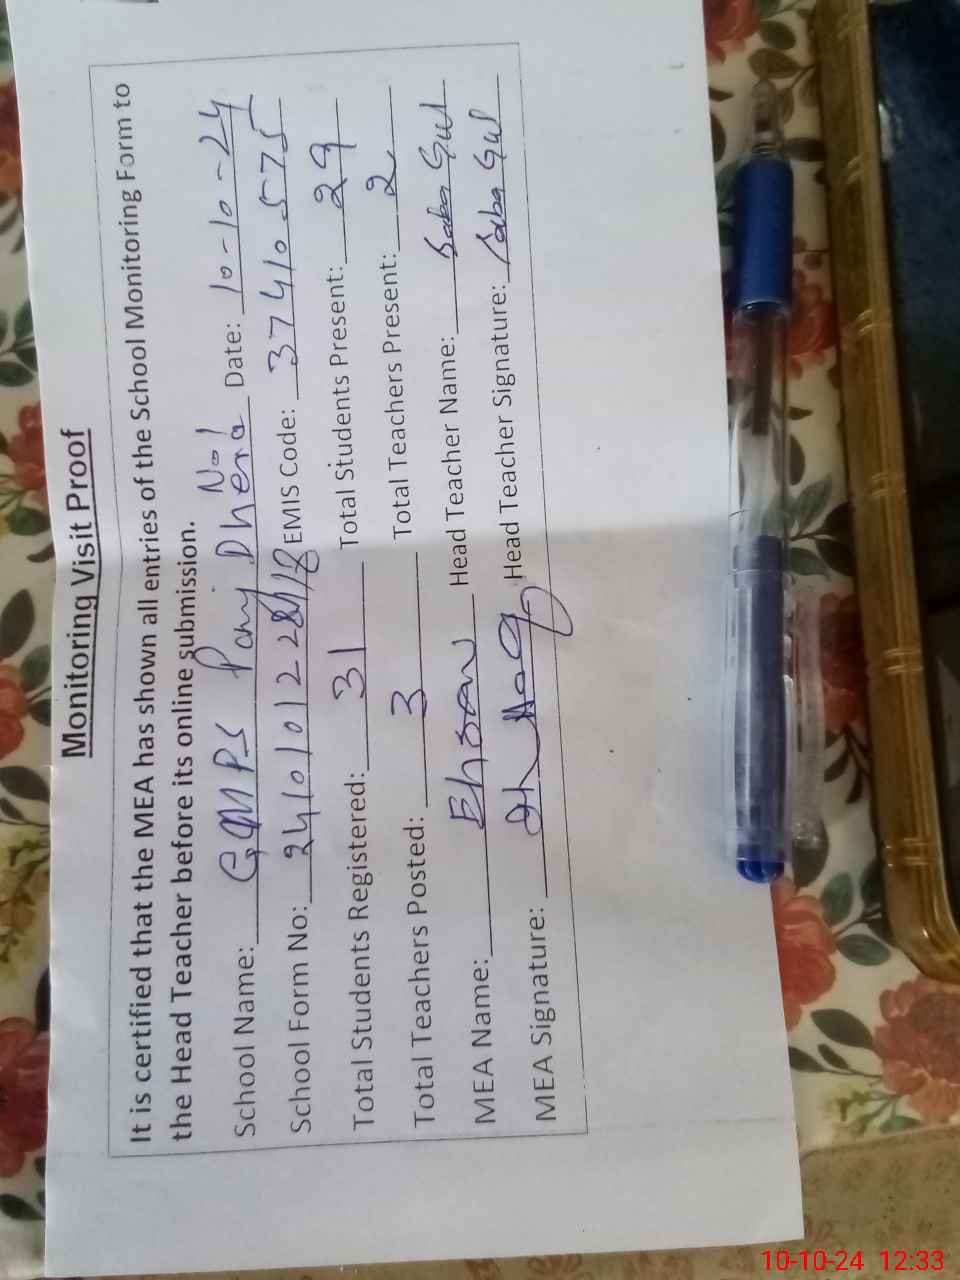 Monitoring Visit Proof
It is certified that the MEA has shown all entries of the School Monitoring Form to
the Head Teacher before its online submission.
School Name: GMPS Panj Dhera No1 Date: 10-10-24
School Form No: EMIS Code: 37410575
Total Students Registered: 31 Total Students Present: 29
Total Teachers Posted: 3 Total Teachers Present: 2
MEA Name: Ehsan Head Teacher Name: Saba Gul
MEA Signature: Head Teacher Signature: Saba Gul
10-10-24 12:33